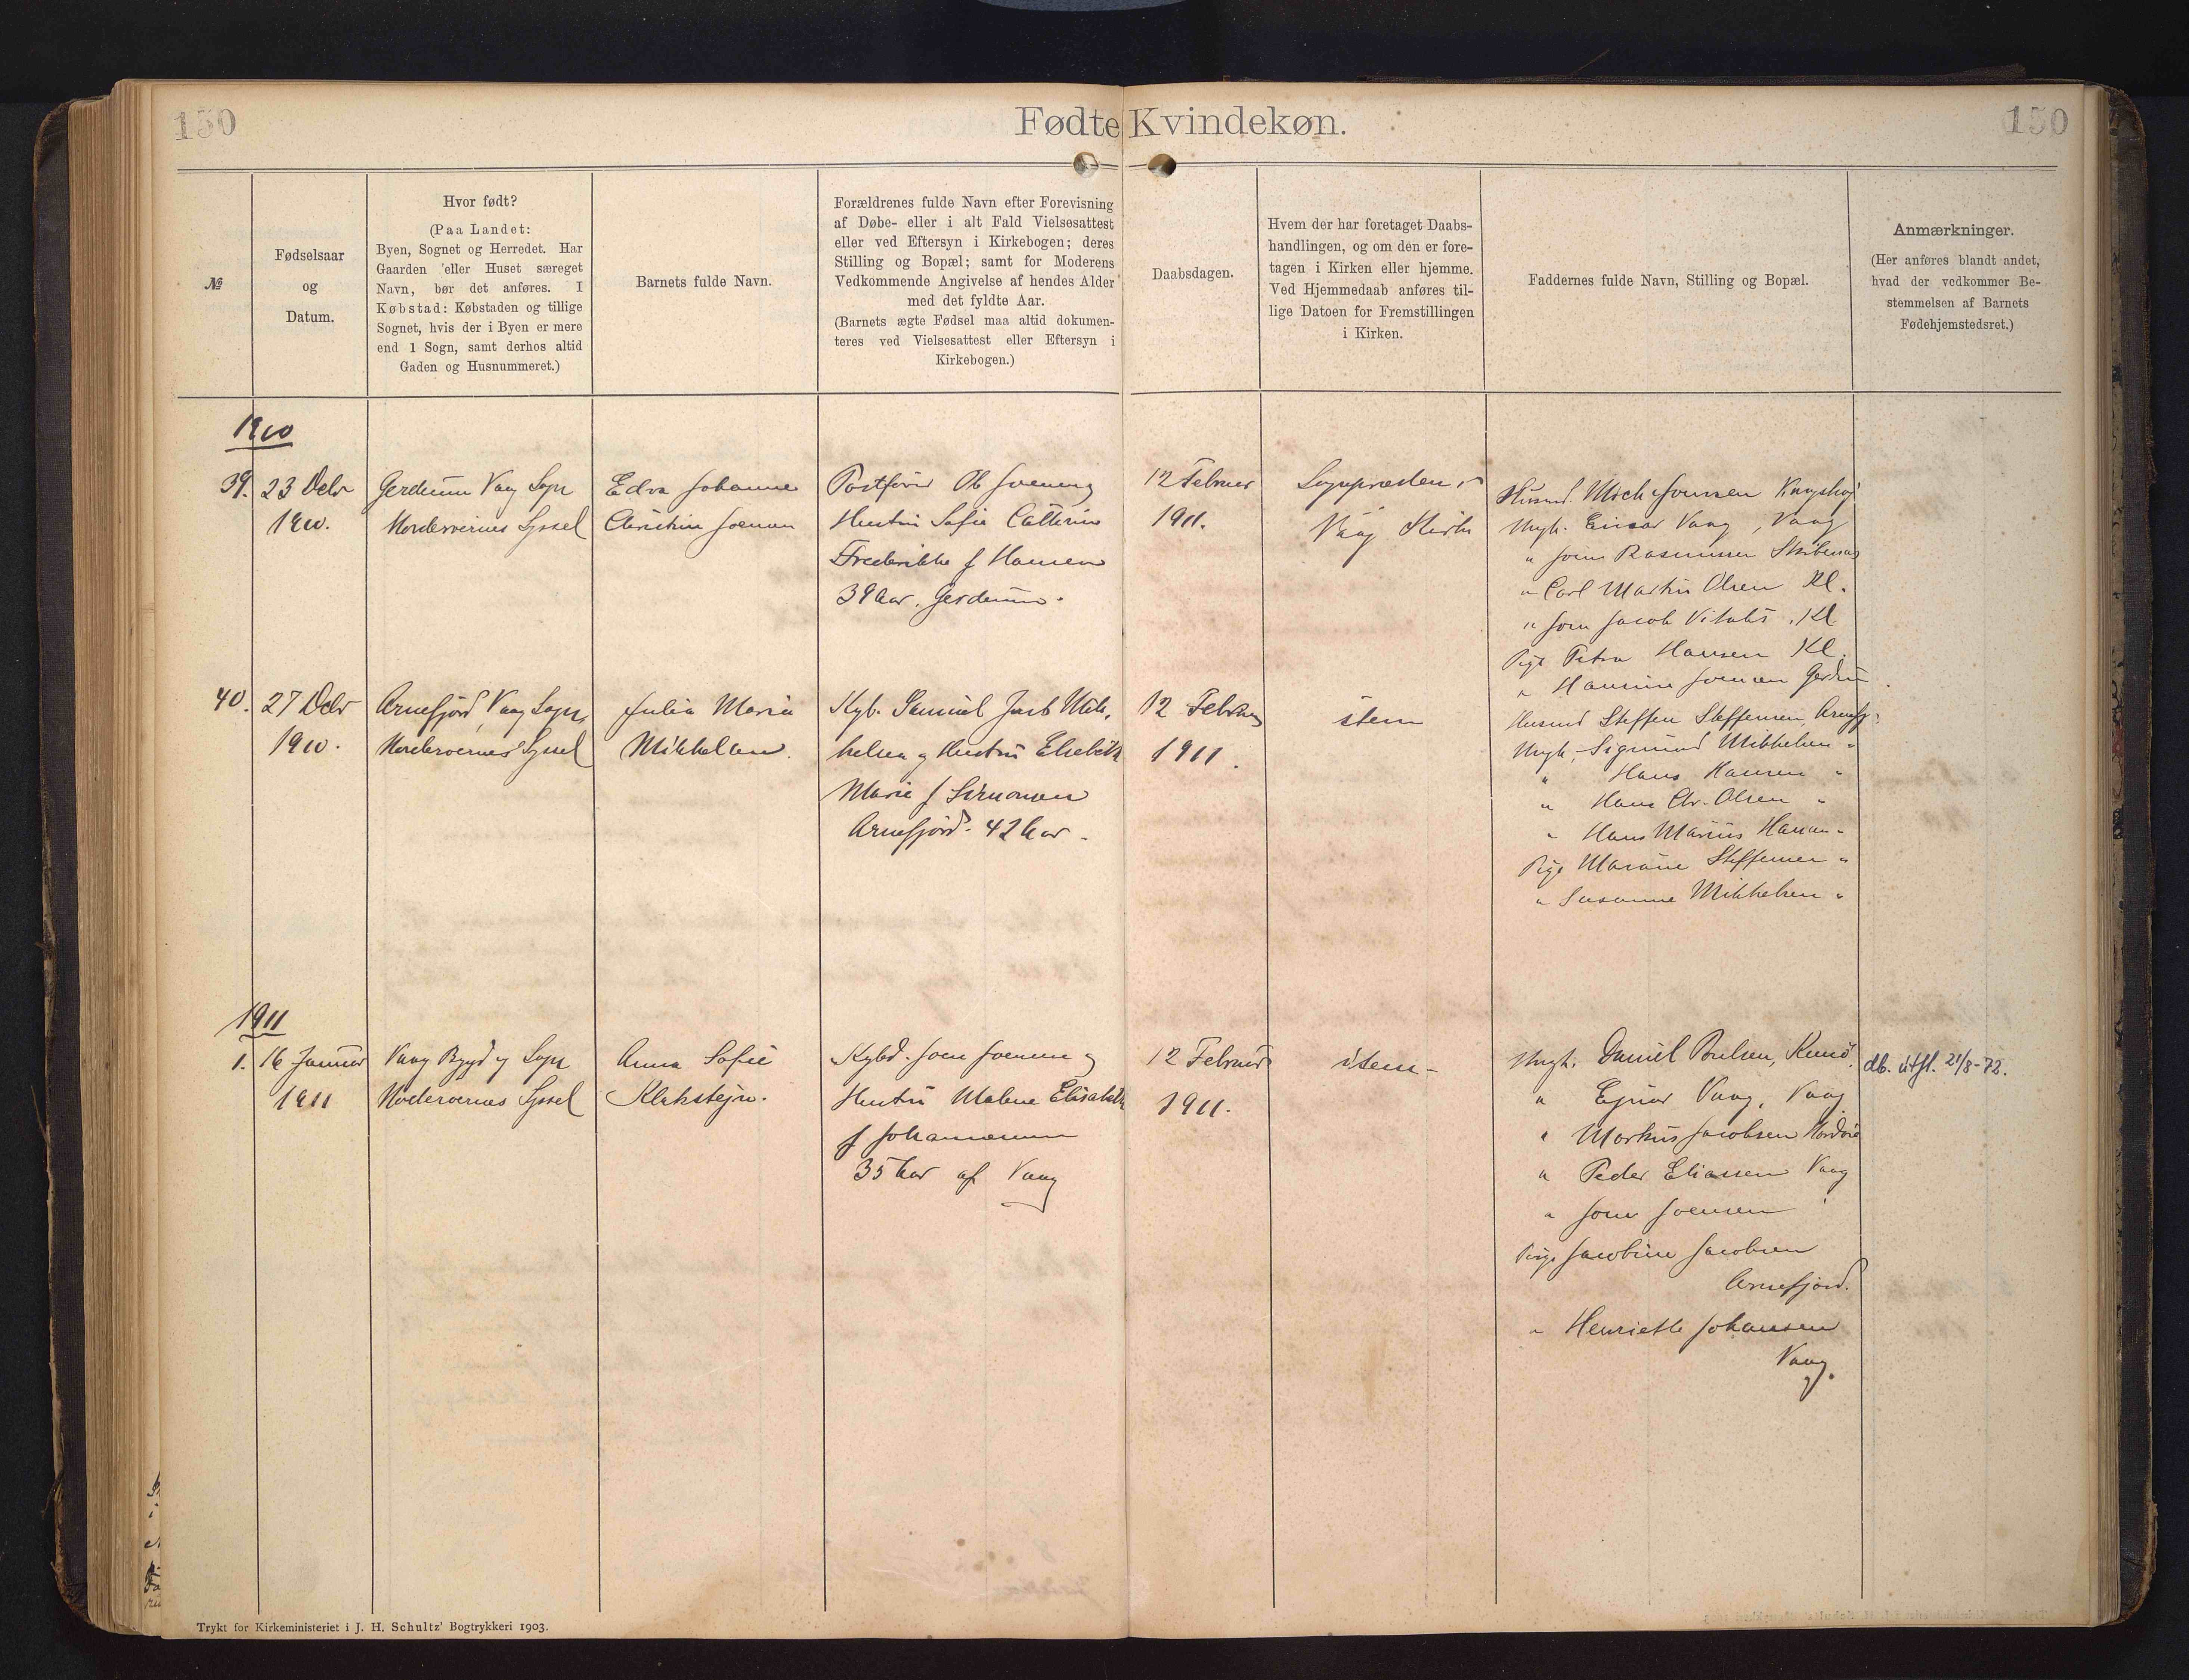 150
Fødte Kvindekøn.
150
№
Fødselsaar
og
Datum.
Hvor født?
(Paa Landet:
Byen, Sognet og Herredet. Har
Gaarden eller Huset særeget
Navn, bør det anføres. I
Købstad: Købstaden og tillige
Sognet, hvis der i Byen er mere
end 1 Sogn, samt derhos altid
Gaden og Husnummeret.)
Barnets fulde Navn.
Forældrenes fulde Navn efter Forevisning
af Døbe- eller i alt Fald Vielsesattest
eller ved Eftersyn i Kirkebogen; deres
Stilling og Bopæl; samt for Moderens
Vedkommende Angivelse af hendes Alder
med det fyldte Aar.
(Barnets ægte Fødsel maa altid dokumen-
teres ved Vielsesattest eller Eftersyn i
Kirkebogen.)
Daabsdagen.
Hvem der har foretaget Daabs-
handlingen, og om den er fore-
tagen i Kirken eller hjemme.
Ved Hjemmedaab anføres til-
lige Datoen for Fremstillingen
i Kirken.
Faddernes fulde Navn, Stilling og Bopæl.
Anmærkninger.
(Her anføres blandt andet,
hvad der vedkommer Be-
stemmelsen af Barnets
Fødehjemstedsret.)
1910
39.
23 Decbr
1910.
Gerdum Vaag Sogn
Norderoernes Syssel
Edva Johanne
Christine Joensen
Ole Joensen og
Hustru Sofie Cathrine
Frederikke f Hansen
39 Aar. Gerdum.
12 Februar
1911.
Sognepræsten i
Vaag Kirke
Joensen
Ungk. Einar Vaag, Vaag
" Joen Rasmussen
" Carl Martin Olsen Kl.
" Joen Jacob Kl
Pige Petra Hansen Kl.
" Hansine Joensen Gerdum
40.
27 Decbr
1910.
Arnefjord, Vaag Sogn,
Norderoernes Syssel
Julia Maria
Mikkelsen.
Samuel Mik-
kelsen og Hustru Elsebeth
Marie f Simonsen
Arnefjord. 42 Aar.
12 Februar
1911.
item
Husmd Steffen Steffensen, Arnefj.
Ungk. Sigmund Mikkelsen "
" Hans Hansen "
" Hans Chr. Olsen "
" Hans Marius Hansen "
Pige Steffensen "
" Susanne Mikkelsen "
1911
1.
16 Januar
1911
Vaag Bygd og Sogn
Norderoernes Syssel
Anna Sofie
Klakstejn.
Joen Joensen og
Hustru Malene Elisabeth
f Johannesen
35 Aar af Vaag
12 Februar
1911.
item
Ungk. Daniel Poulsen, Kunø.
" Ejnar Vaag, Vaag
" Markus Jacobsen
" Peder Eliassen Vaag
" Joen Joensen "
Pige Jacobine Jacobsen
Arnefjord.
" Henriette Johansen
Vaag.
db. útfl. 21/8-72.
Trykt for Kirkeministeriet i J. H. Schultz' Bogtrykkeri 1903.